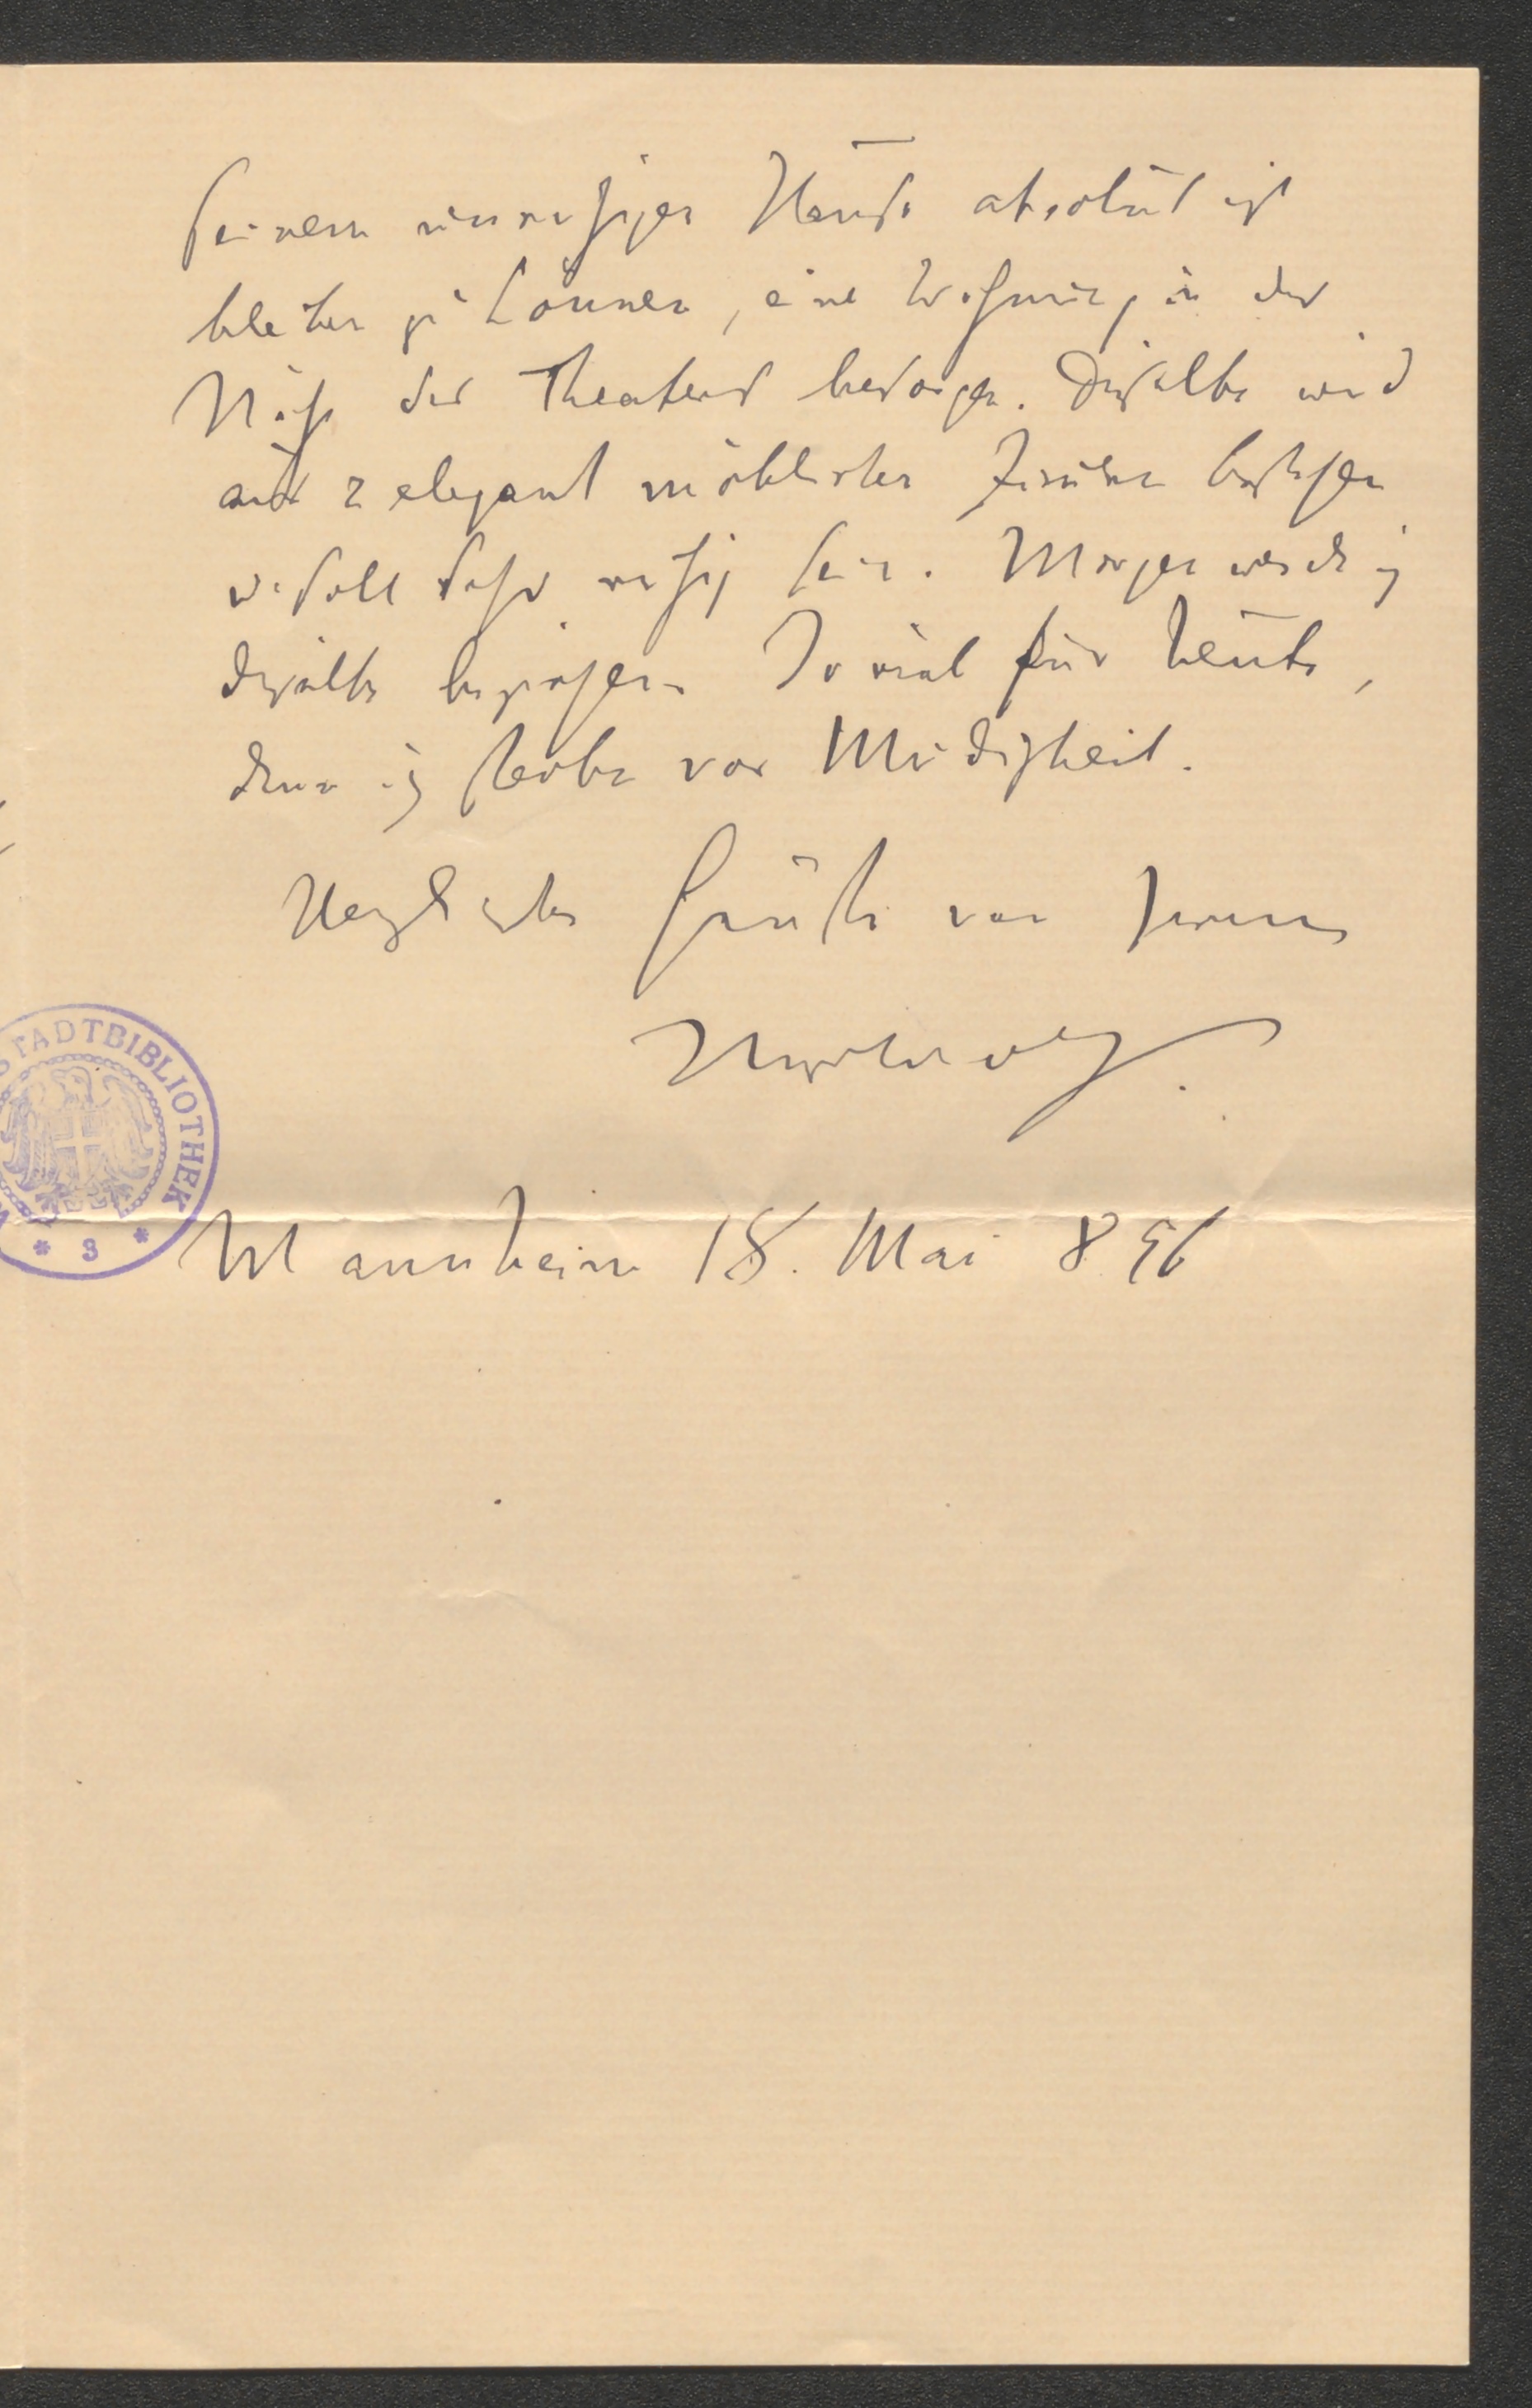 seinem unruhigen Hause absolut nicht
bleiben zu können, eine Wohnung in der
Nähe des Theaters besorgen. Dieselbe wird
aus 2 elegant möblirten Zimmern bestehen
u. soll sehr ruhig sein. Morgen werde ich
dieselbe beziehen. So viel für heute,
denn ich sterbe vor Müdigkeit.
Herzlichste Grüße von Ihrem
STADTBIBLIOTHEK
* 3 *
Mannheim 18. Mai 896